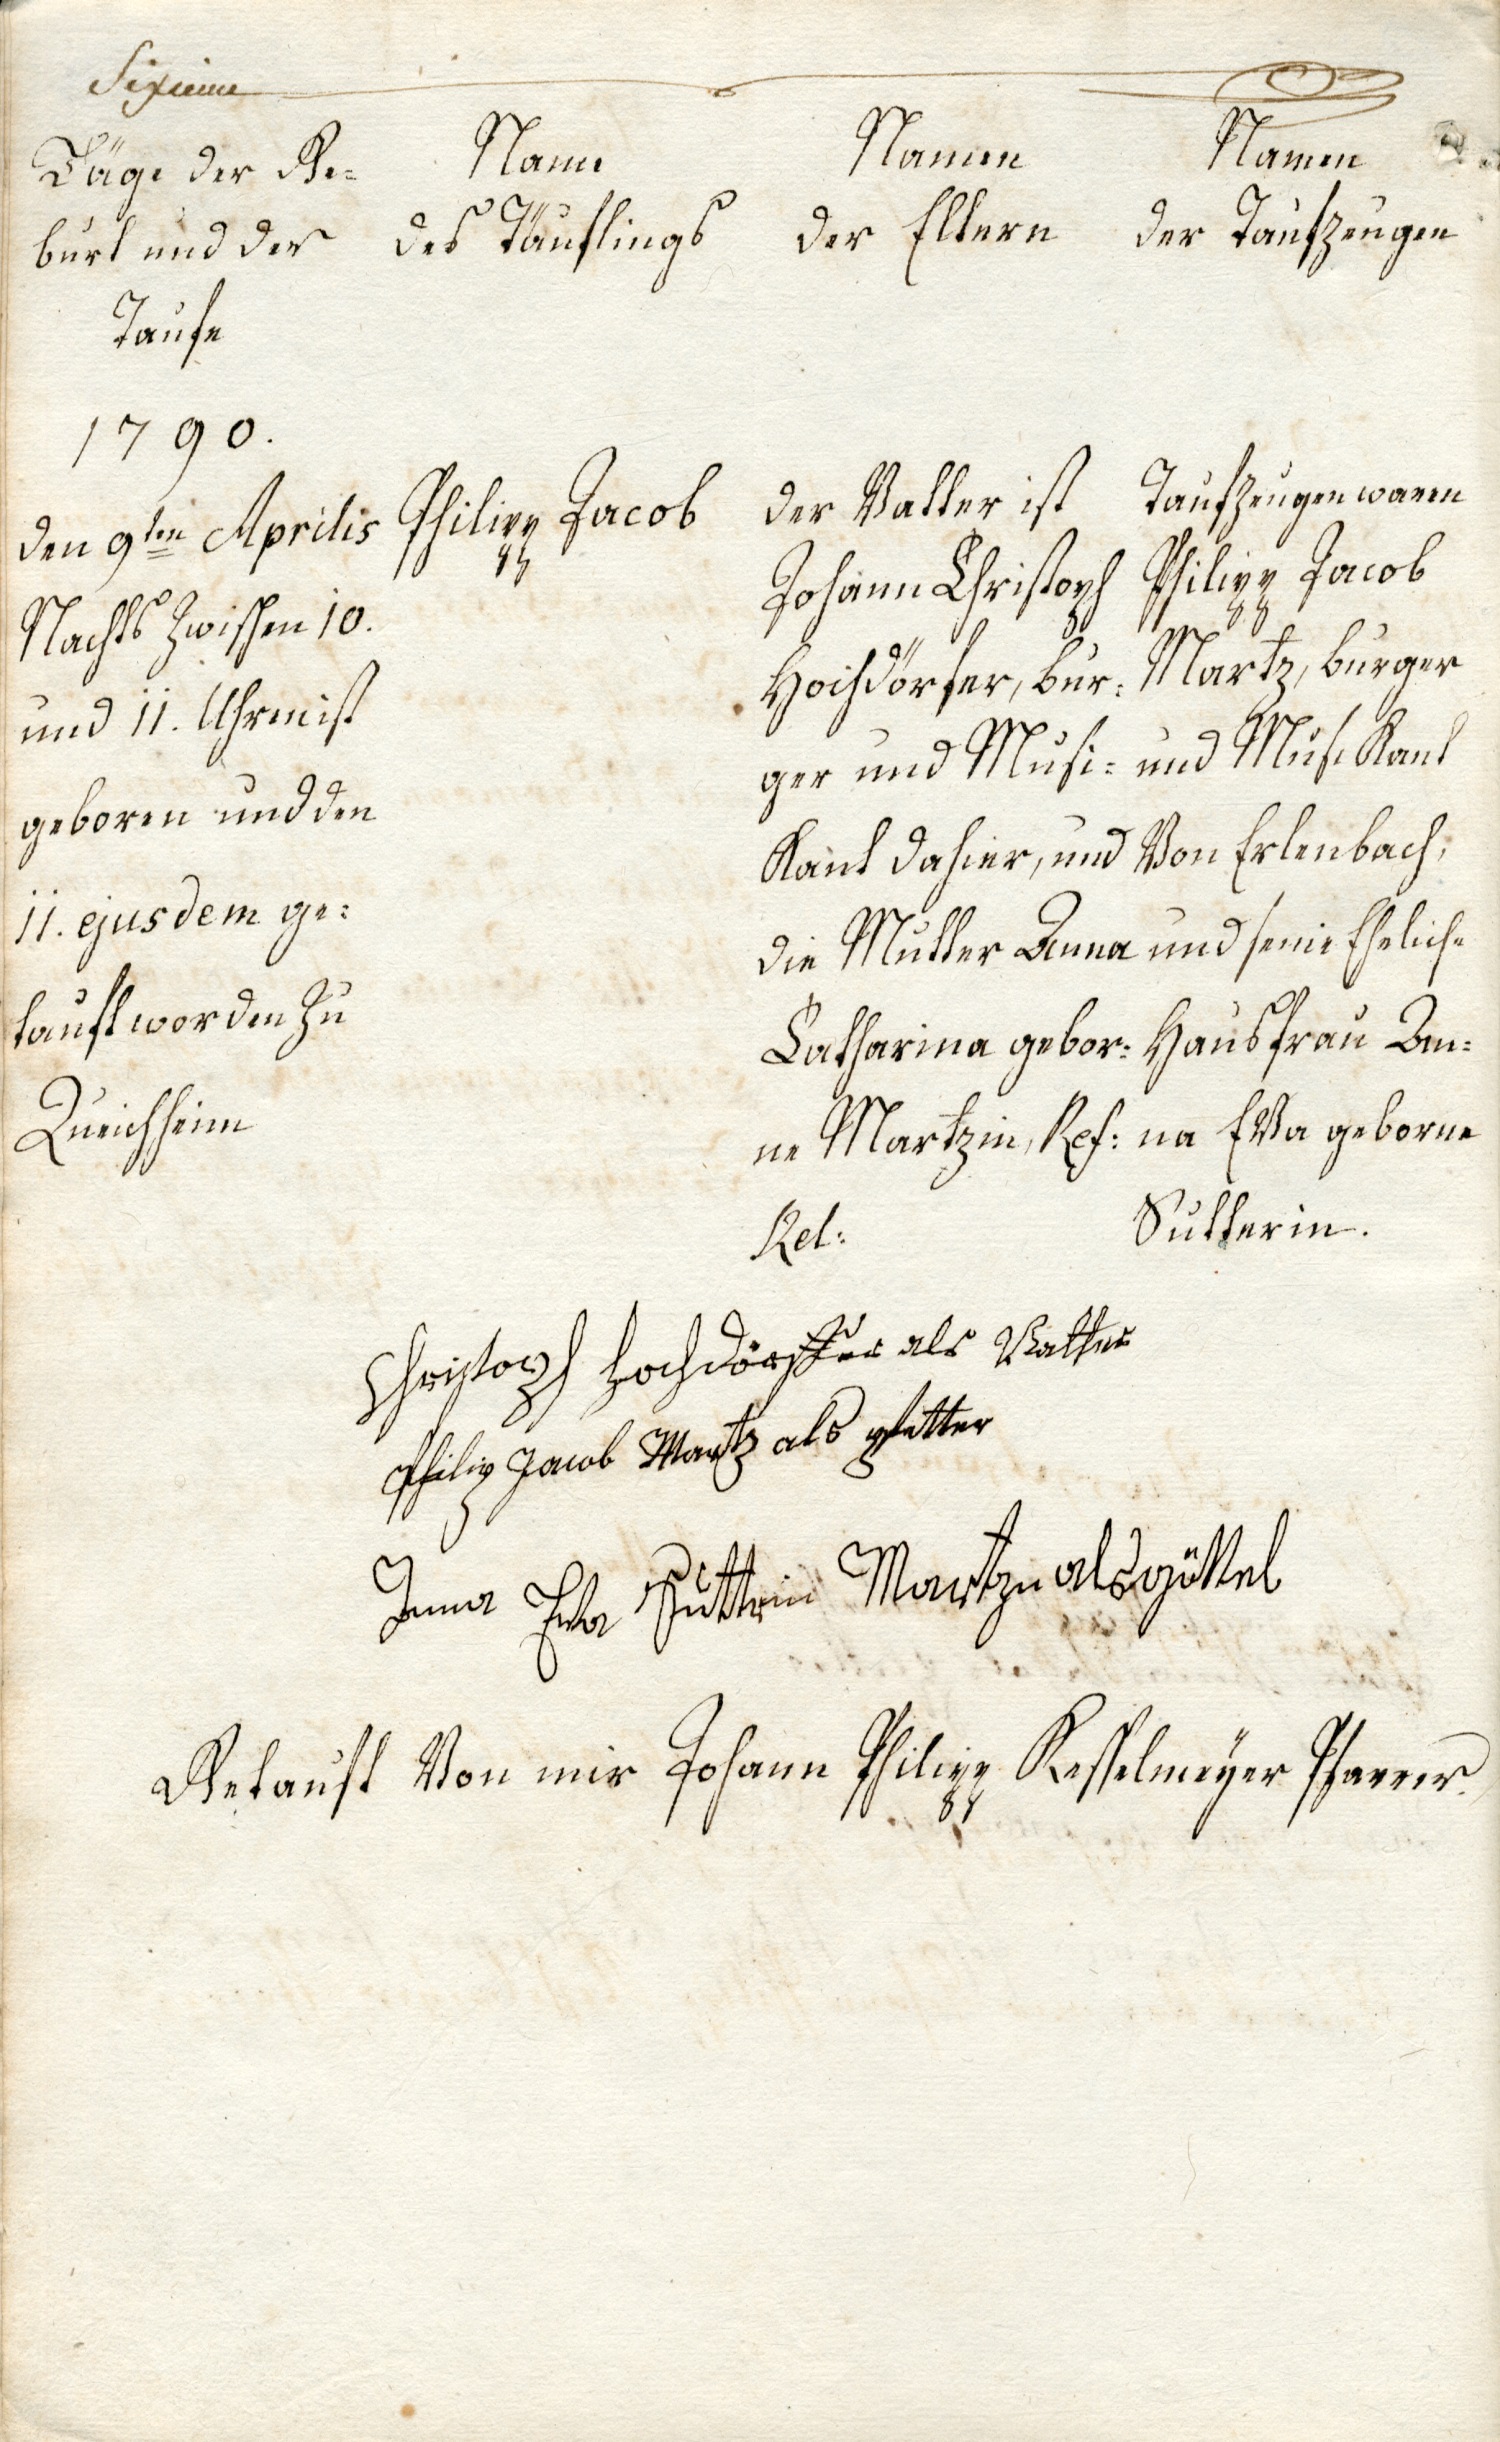 Sixieme
Täge der Ge=
burt und der
Taufe
Name
des Täuflings
Namen
der Eltern
Namen
der Taufzeugen
1790.
den 9ten Aprilis
Nachts zwischen 10.
und 11. Uhren ist
geboren und den
11. ejusdem ge=
tauft worden zu
Queichheim
Philipp Jacob
der Vatter ist
Johann Christoph
Hochdörfer, bur=
ger und Musi=
kant dahier, und
die Mutter Anna
Catharina gebor=
ne Martzin, Ref:
Rel:
Taufzeugen waren
Philipp Jacob
Martz, burger
und Musikant
Von Erlenbach,
und seine Eheliche
Hausfrau An=
na Eva geborne
Sutterin.
Christoph Hochdörffer als Vatter
Philip Jacob Martz als pfetter
Anna Eva Suttrin Martzin als göttel
Getauft Von mir Johann Philipp Kesselmeÿer Pfarrer.